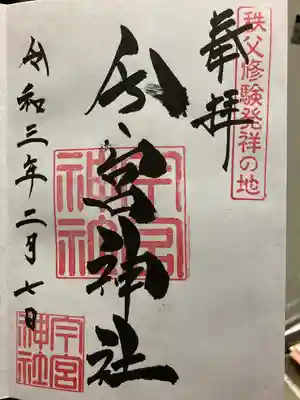 秩父修験発祥の地
奉拝
今宮神社
今宮神社
令和三年二月七日
今宮神社